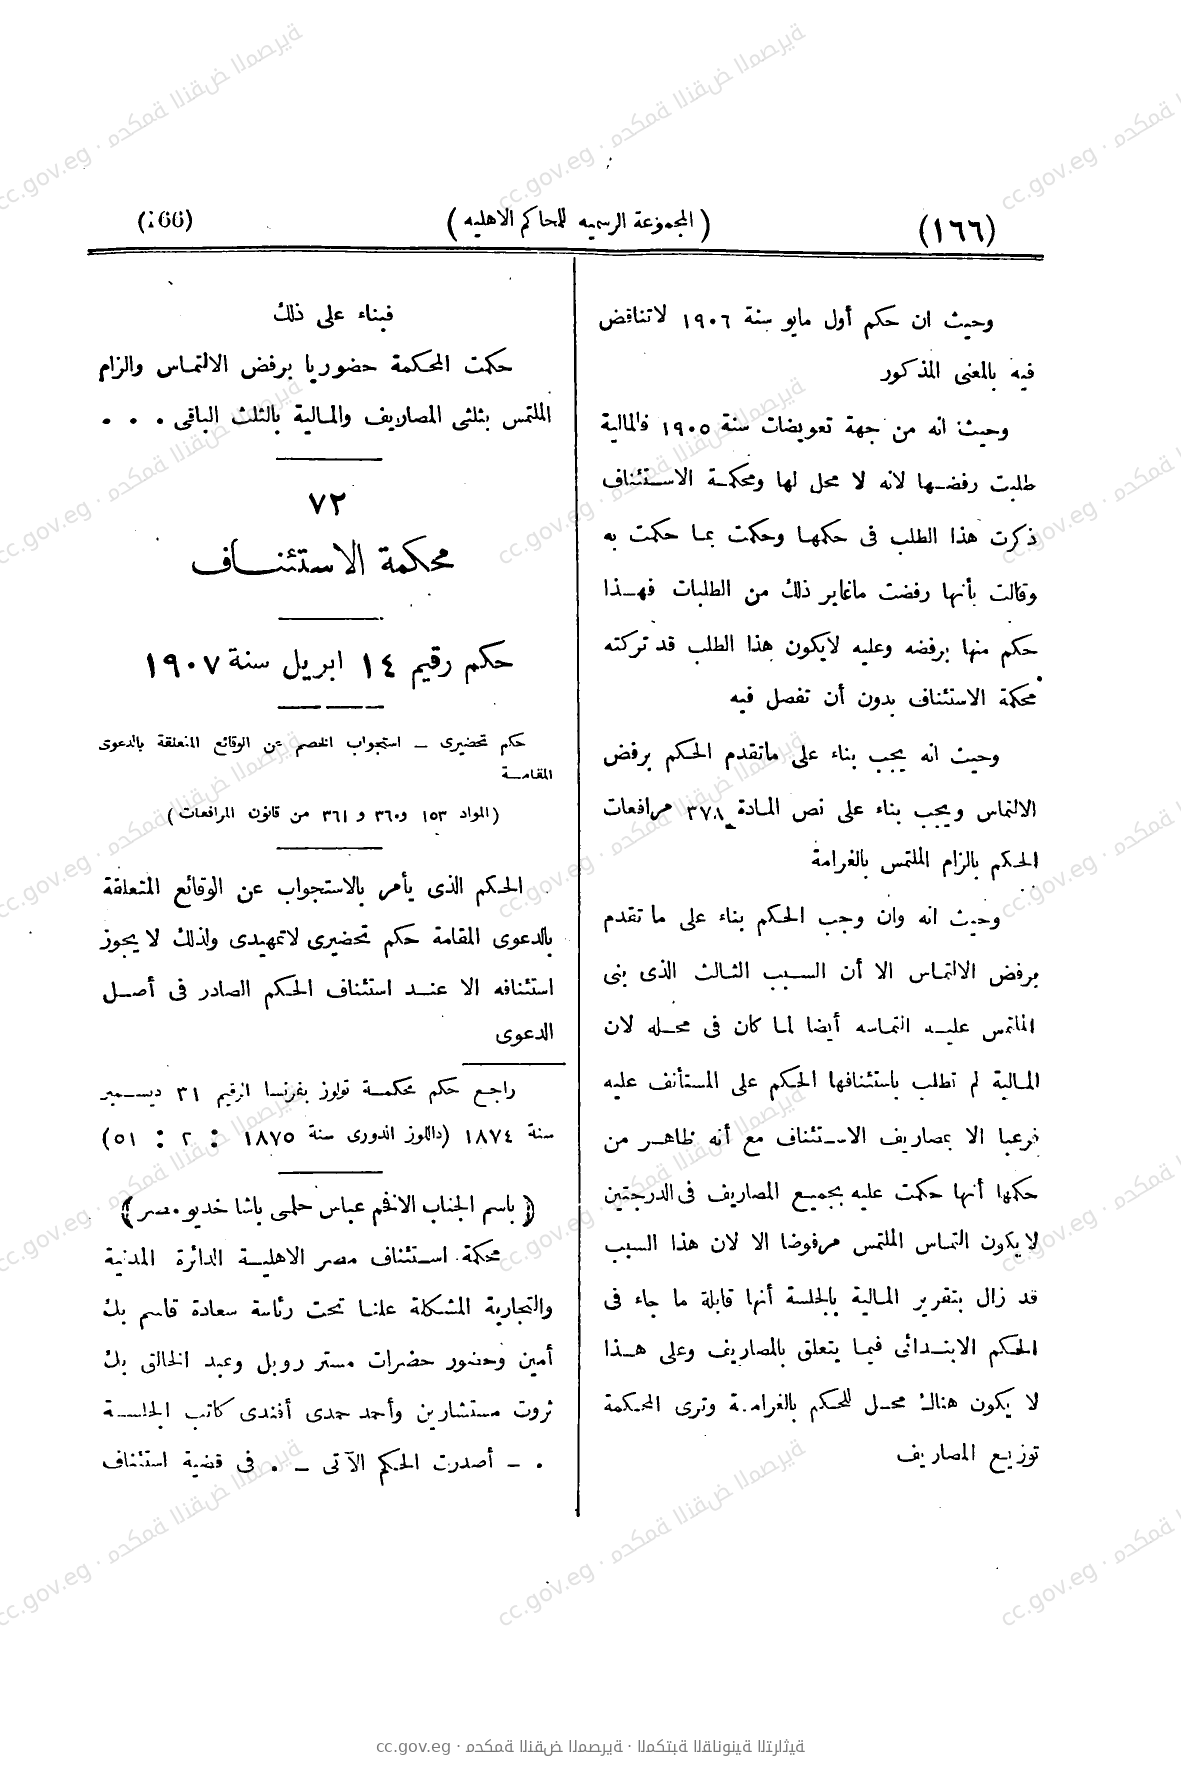 (١٦٦)
(المجموعة الرسمیه للمحاكم الاهلیه)
(166)
وحيث ان حكم أول مايو سنة ١٩٠٦ لاتناقض
فيه بالمعنى المذكور
وحيث انه من جهة تعويضات سنة ١٩٠٥ فالمالية
طلبت رفضها لانه لا محل لها ومحكمة الاستئناف
ذكرت هذا الطلب فى حكمها وحكمت بما حكمت به
وقالت بأنها رفضت ماغاير ذلك من الطلبات فهذا
حكم منها برفضه وعليه لايكون هذا الطلب قد تركته
محكمة الاستئناف بدون أن تفصل فيه
وحيث انه يجب بناء على ماتقدم الحكم برفض
الالتماس ويجب بناء على نص المادة ٣٧٨ مرافعات
الحكم بالزام الملتمس بالغرامة
وحيث انه وان وجب الحكم بناء على ما تقدم
برفض الالتماس الا أن السبب الثالث الذى بنى
الملتمس عليه التماسه أيضا لما كان فى محله لان
المالية لم تطلب باستئنافها الحكم على المستأنف عليه
فرعيا الا بمصاريف الاستئناف مع أنه ظاهر من
حكمها أنها حكمت عليه بجميع المصاريف فى الدرجتين
لايكون التماس الملتمس مرفوضا الا لان هذا السبب
قد زال بتقرير المالية بالجلسة أنها قابلة ما جاء فى
الحكم الابتدائى فيما يتعلق بالمصاريف وعلى هذا
لا يكون هناك محل للحكم بالغرامة وترى المحكمة
توزيع المصاريف
فبناء على ذلك
حكمت المحكمة حضوريا برفض الالتماس والزام
الملتمس بثلثى المصاريف والمالية بالثلث الباقى . . .
٧٢
محكمة الاستئناف
حكم رقيم ١٤ ابريل سنة ١٩٠٧
حكم تحضيرى ــ استجواب الخصم عن الوقائع المتعلقة بالدعوى
المقامة
(المواد ١٥٣ و٣٦٠ و ٣٦١ من قانون المرافعات)
الحكم الذى يأمر بالاستجواب عن الوقائع المتعلقة
بالدعوى المقامة حكم تحضيرى لاتمهيدى ولذلك لايجوز
استئنافه الا عند استئناف الحكم الصادر فى أصل
الدعوى
راجع حكم محكمة تولوز بفرنسا الرقيم ٣١ ديسمبر
سنة ١٨٧٤ (داللوز الدورى سنة ١٨٧٥ : ٢ : ٥١)
(باسم الجناب الافخم عباس حلمى باشا خديو مصر)
محكمة استئناف مصر الاهلية الدائرة المدنية
والتجارية المشكلة علنا تحت رئاسة سعادة قاسم بك
أمين وحضور حضرات مستر رويل وعبد الخالق بك
ثروت مستشارين وأحمد حمدى أفندى كاتب الجلسة
. ــ أصدرت الحكم الآتى ــ . فى قضية استئناف
cc.gov.eg · محكمة النقض المصرية · المكتبة القانونية التراثية